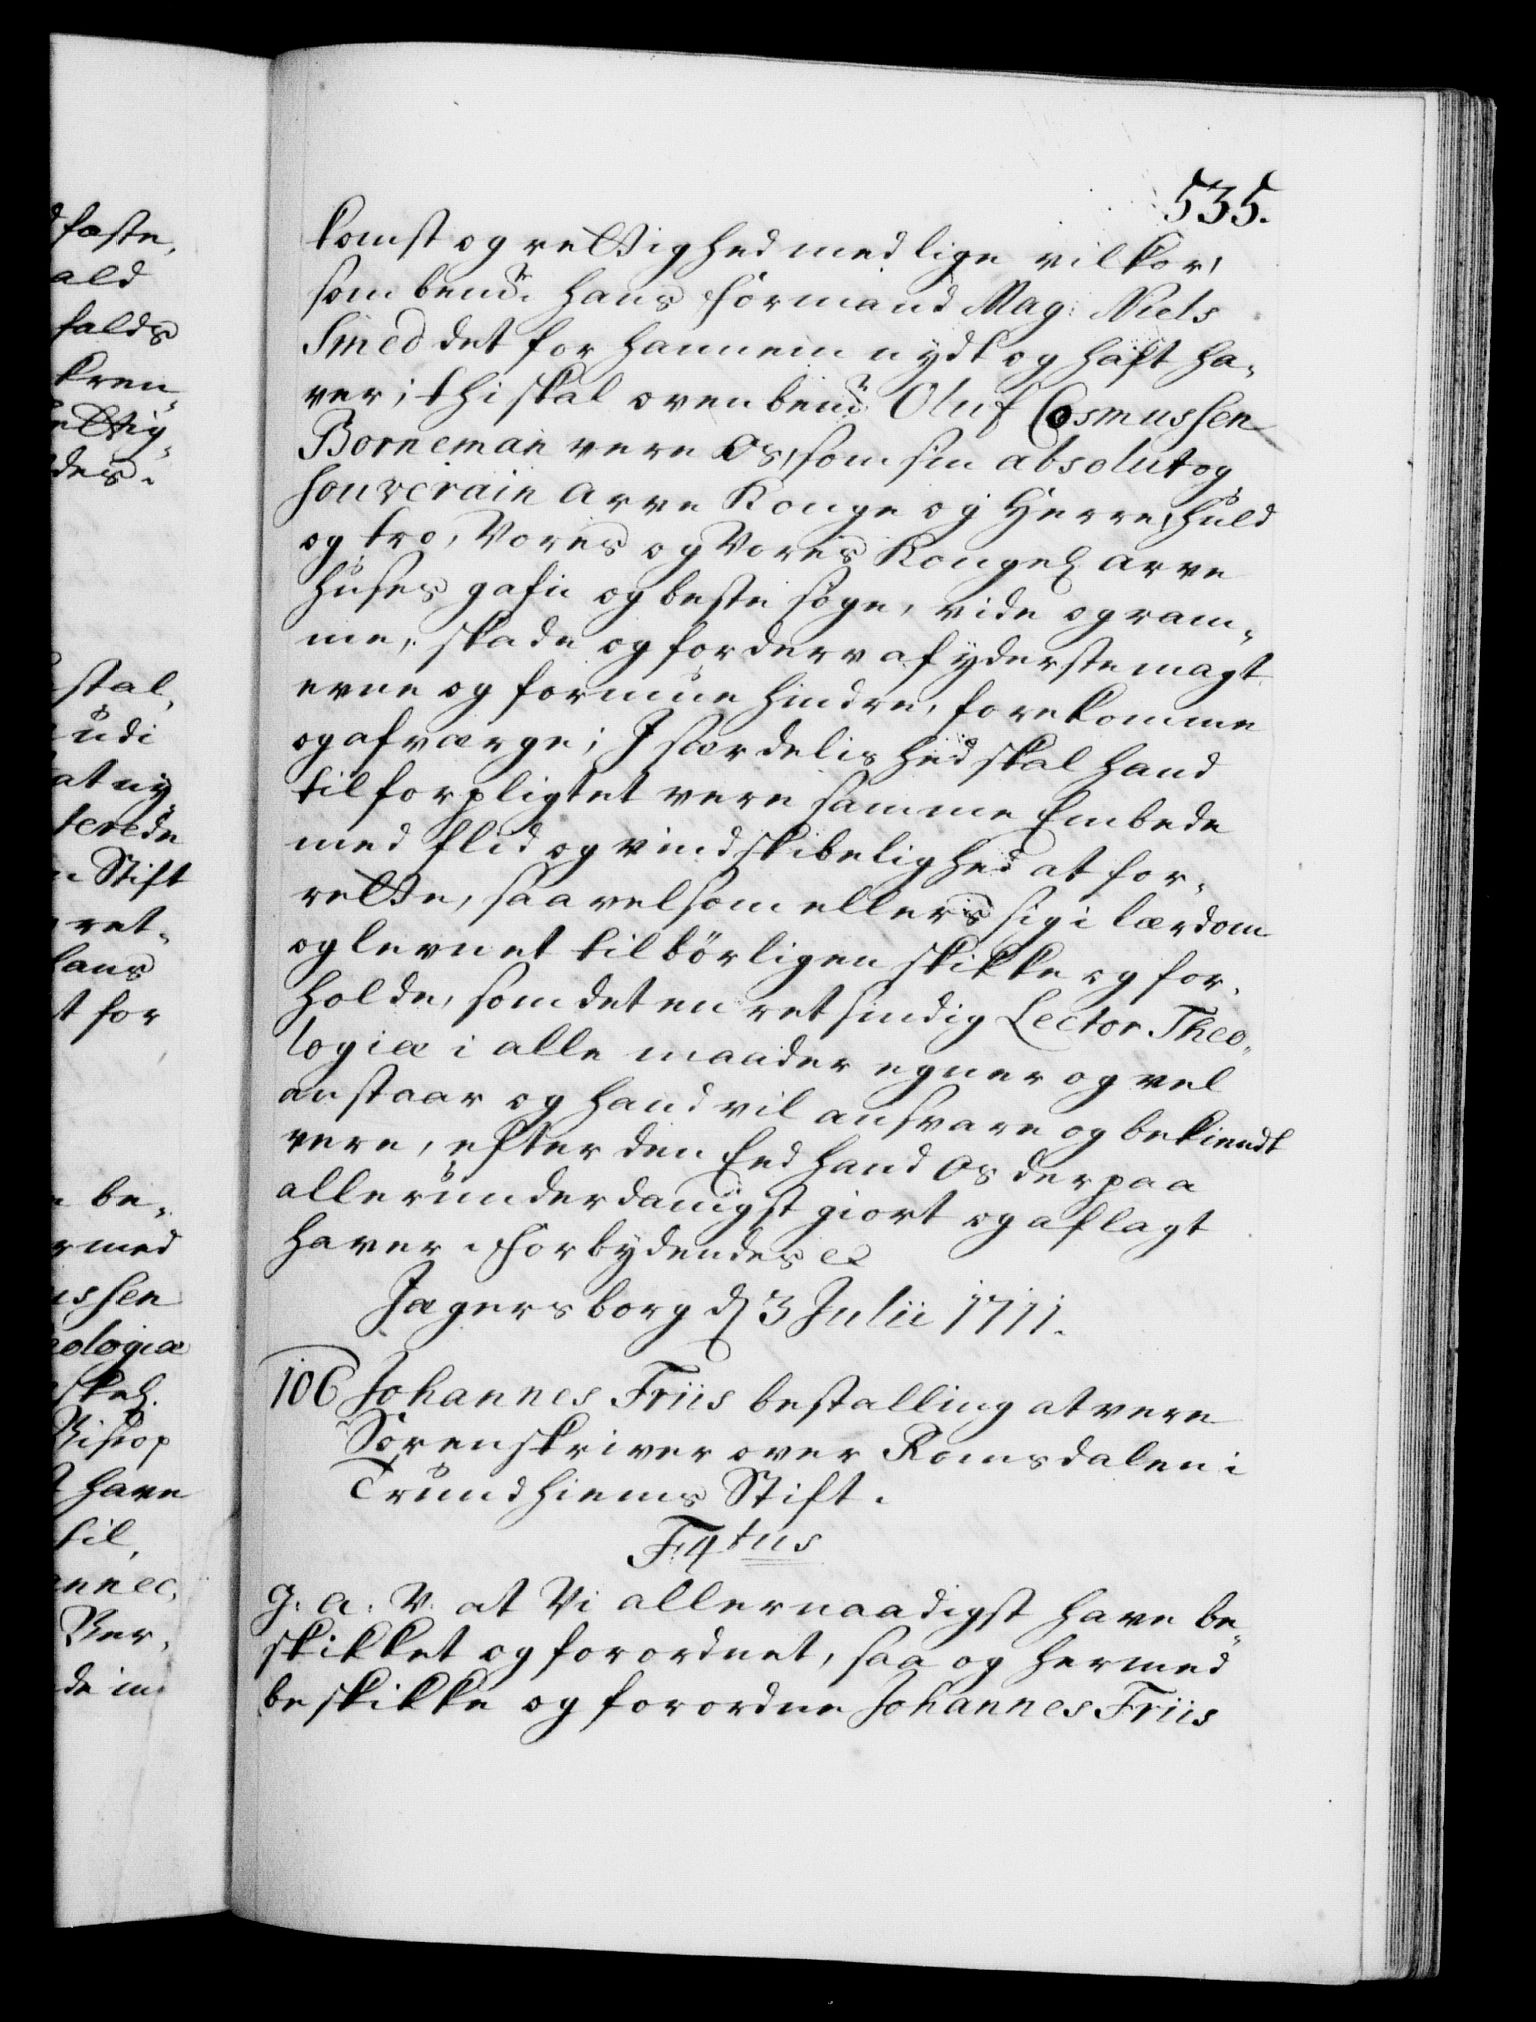 535.
komst og rettighed med lige vilkor,
som bemte. hans Formand Mag: Niels
Smed det for hannem nydt og haft ha-
ver; thi skal ovenbemte Oluf Cosmussen
Borneman vere Os, som sin absolut og
souverain Arve Konge og Herre, huld
og tro, Vores og Vores Kongel Arve
Huses gafn og beste søge, vide og ram-
me, skade og forderv af yderste magt
evne og formue hindre, forekomme
og afværge; I særdelished skal hand
tilforpligtet vere samme Embede
med flid og vindskibelighed at for-
rette, saavelsom ellers sig i lærdom
og levnet tilbørligen skikke og for-
holde, som det en retsindig Lector Theo-
logiæ i alle maader egner og vel
anstaar og hand vil ansvare og bekiendt
vere, efter den Eed hand Os derpaa
allerunderdanigst giort og aflagt
haver. Forbydendes etc
Jægersborg d 3 Julii 1711.
106 Johannes Friis bestalling at vere
Sorenskriver over Romsdalen i
Trundhiems Stift.
F 4tus
G. A. V. at Vi allernaadigst have be-
skikket og forordnet, saa og hermed
beskikke og forordne Johannes Friis